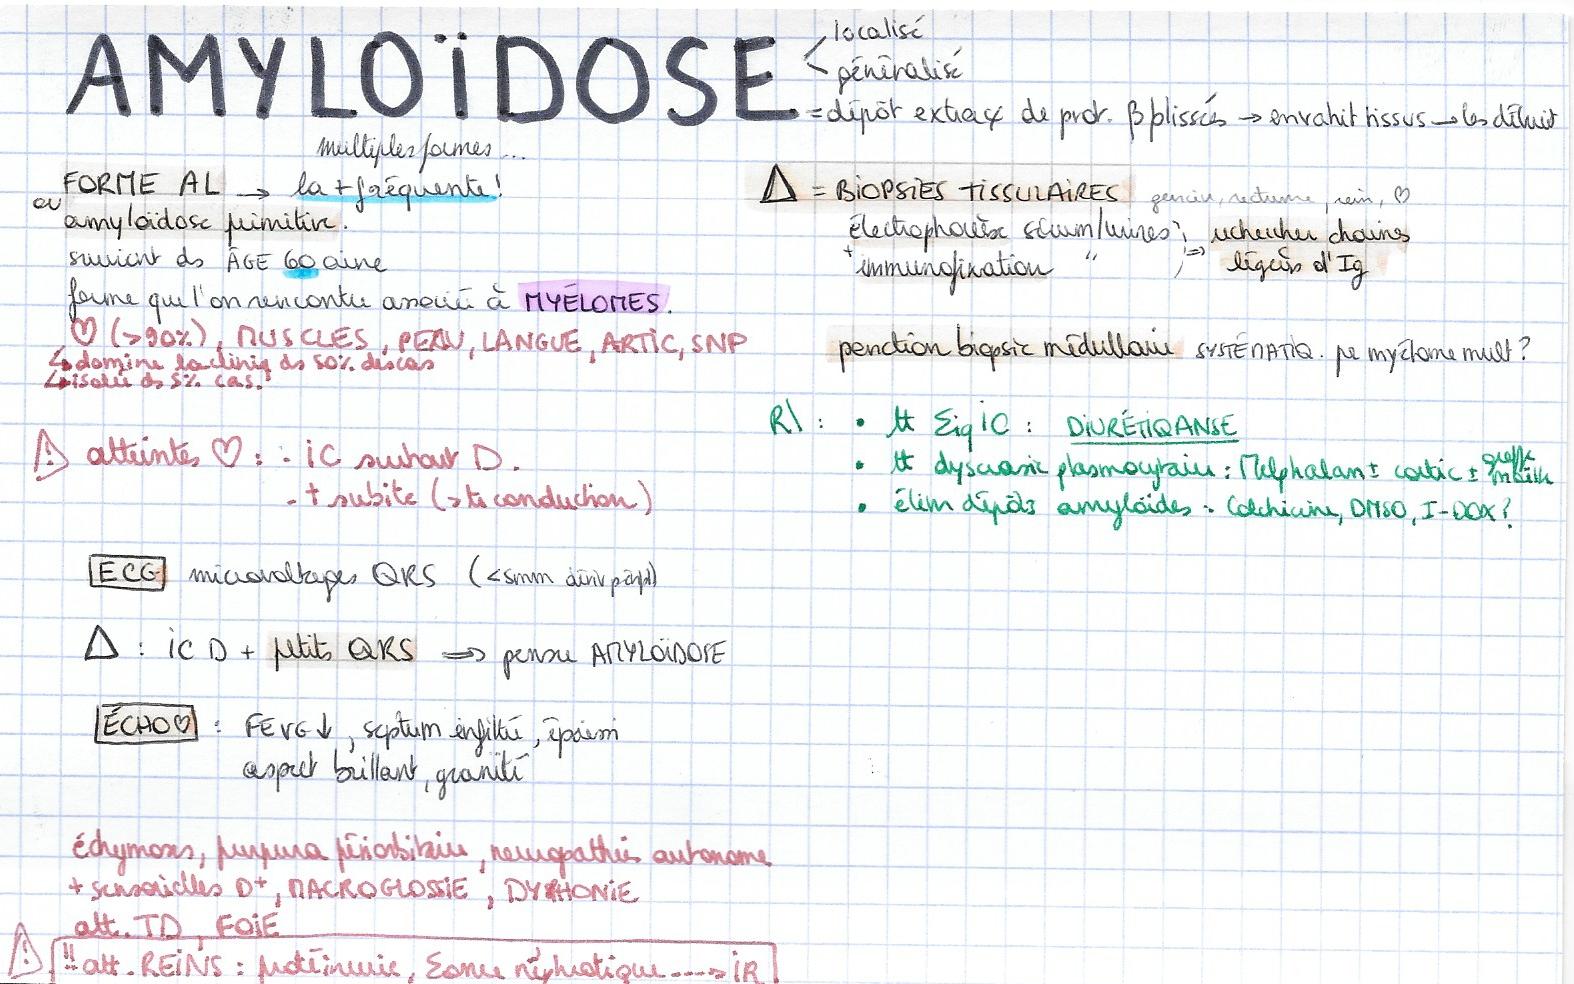 AMYLOÏDOSE
localisé
généralisé
= dépôt extra¢ de prot. β plissés → envahit tissus → les détruit
multiples formes...
FORME AL → la + fréquente !
ou
amyloïdose primitive.
survient ds ÂGE 60aine
forme que l'on rencontre associé à MYÉLOMES.
♡ (>90%), MUSCLES, PEAU, LANGUE, ARTIC, SNP
↳ domine la cliniq ds 50% des cas
↳ isolée ds 5% cas.
⚠ atteintes ♡ : · IC surtout D.
- † subite (> tb conduction)
ECG microvoltages QRS (<5mm dériv périph)
Δ : IC D + petits QRS ⇒ penser AMYLOÏDOSE
ÉCHO♡ : FEVG↓, septum infiltré, épaissi
aspect brillant, granité
échymoses, purpura périorbitaire, neuropathies autonome
+ sensorielles D+, MACROGLOSSIE, DYSPHONIE
att. TD, FOIE
⚠ !! att. REINS : protéinurie, Σdrome néphrotique ----> IR
Δ = BIOPSIES TISSULAIRES gencive, rectum, rein, ♡
électrophorèse sérum/urines
+ immunofixation " ⇒ rechercher chaines
légères d'Ig
ponction biopsie médullaire SYSTÉMATIQ. pr myélome mult ?
R\ : • tt Σiq IC : DIURÉTIQ ANSE
• tt dyscrasie plasmocytaire : Melphalan ± cortic ± greffe
• élim dépôts amyloïdes : Colchicine, DMSO, I-DOX ?